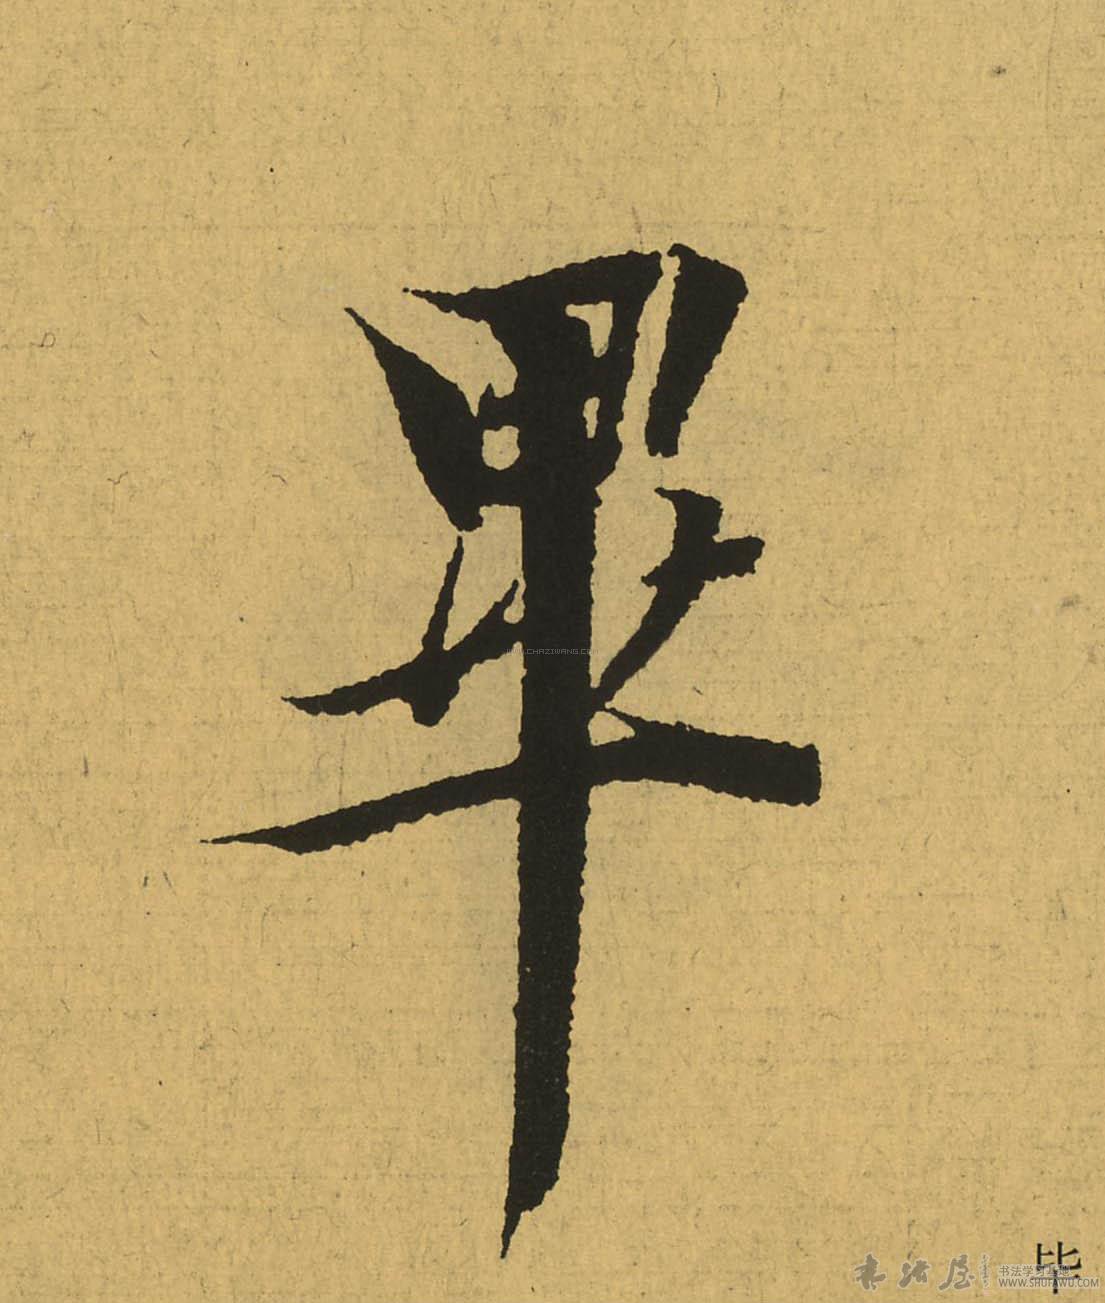 畢
WWW.CHAZIWANG.COM
毕
书法屋
书法学习基地
WWW.SHUFAWU.COM